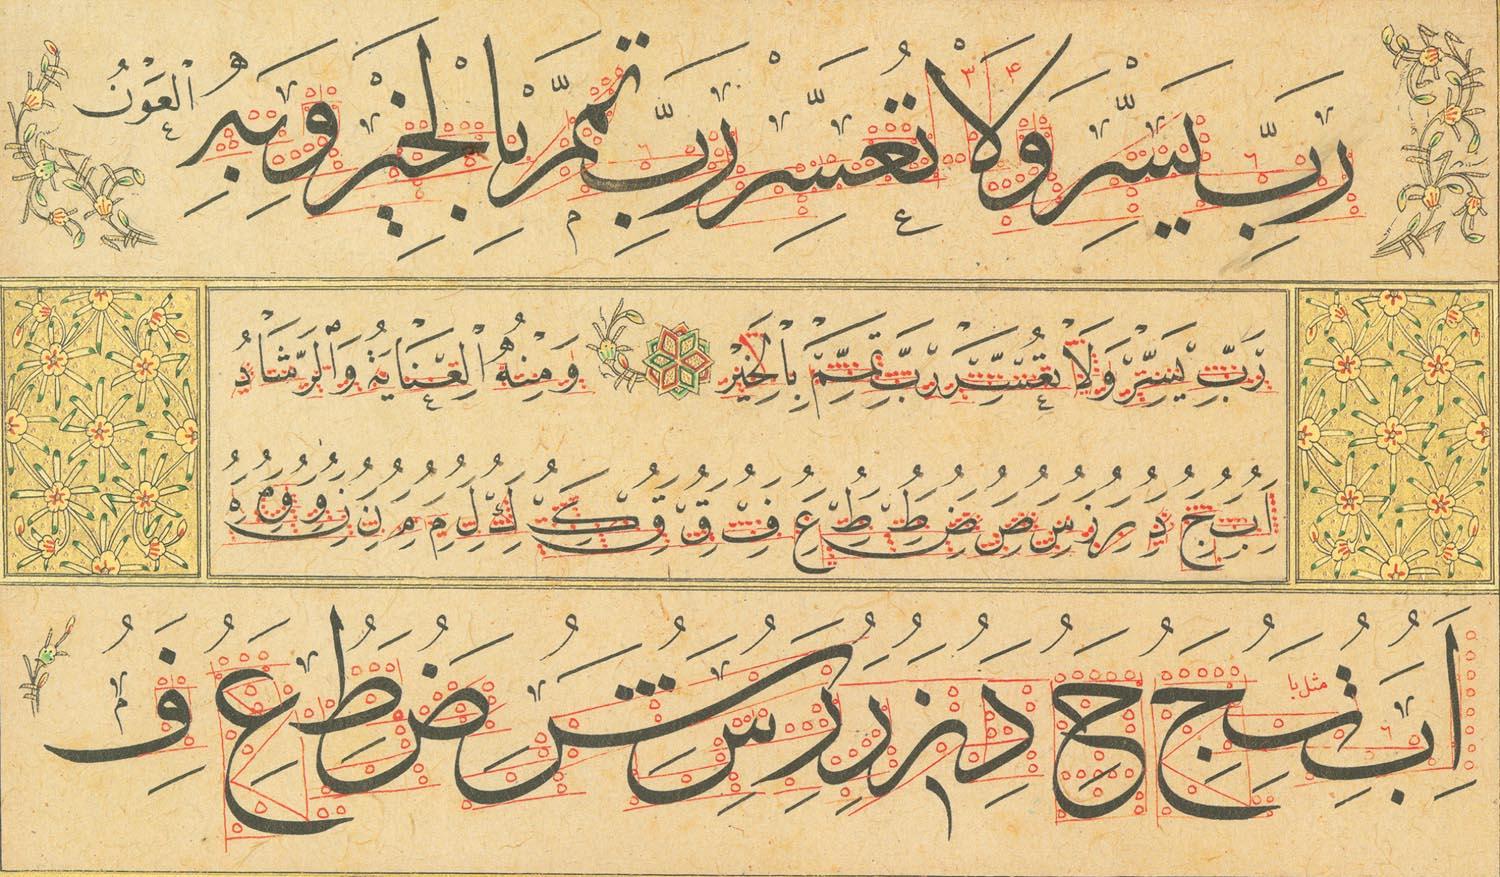 رَبِّ يَسِّرْ وَلَا تُعَسِّرْ رَبِّ تَمِّمْ بِالْخَيْرِ وَبِهِ الْعَوْنُ
٣ ۴
رَبِّ يَسِّرْ وَلَا تُعَسِّرْ رَبِّ تَمِّمْ بِالْخَيْرِ وَمِنْهُ الْعِنَايَةُ وَالرَّشَادُ
ا ب ج د ر ز س ص ض ط ط ع ف ق ق ك ك ل م م ن
مثل با
ا ب ت ج ح د ز ر ر س ش ض ط ع ف